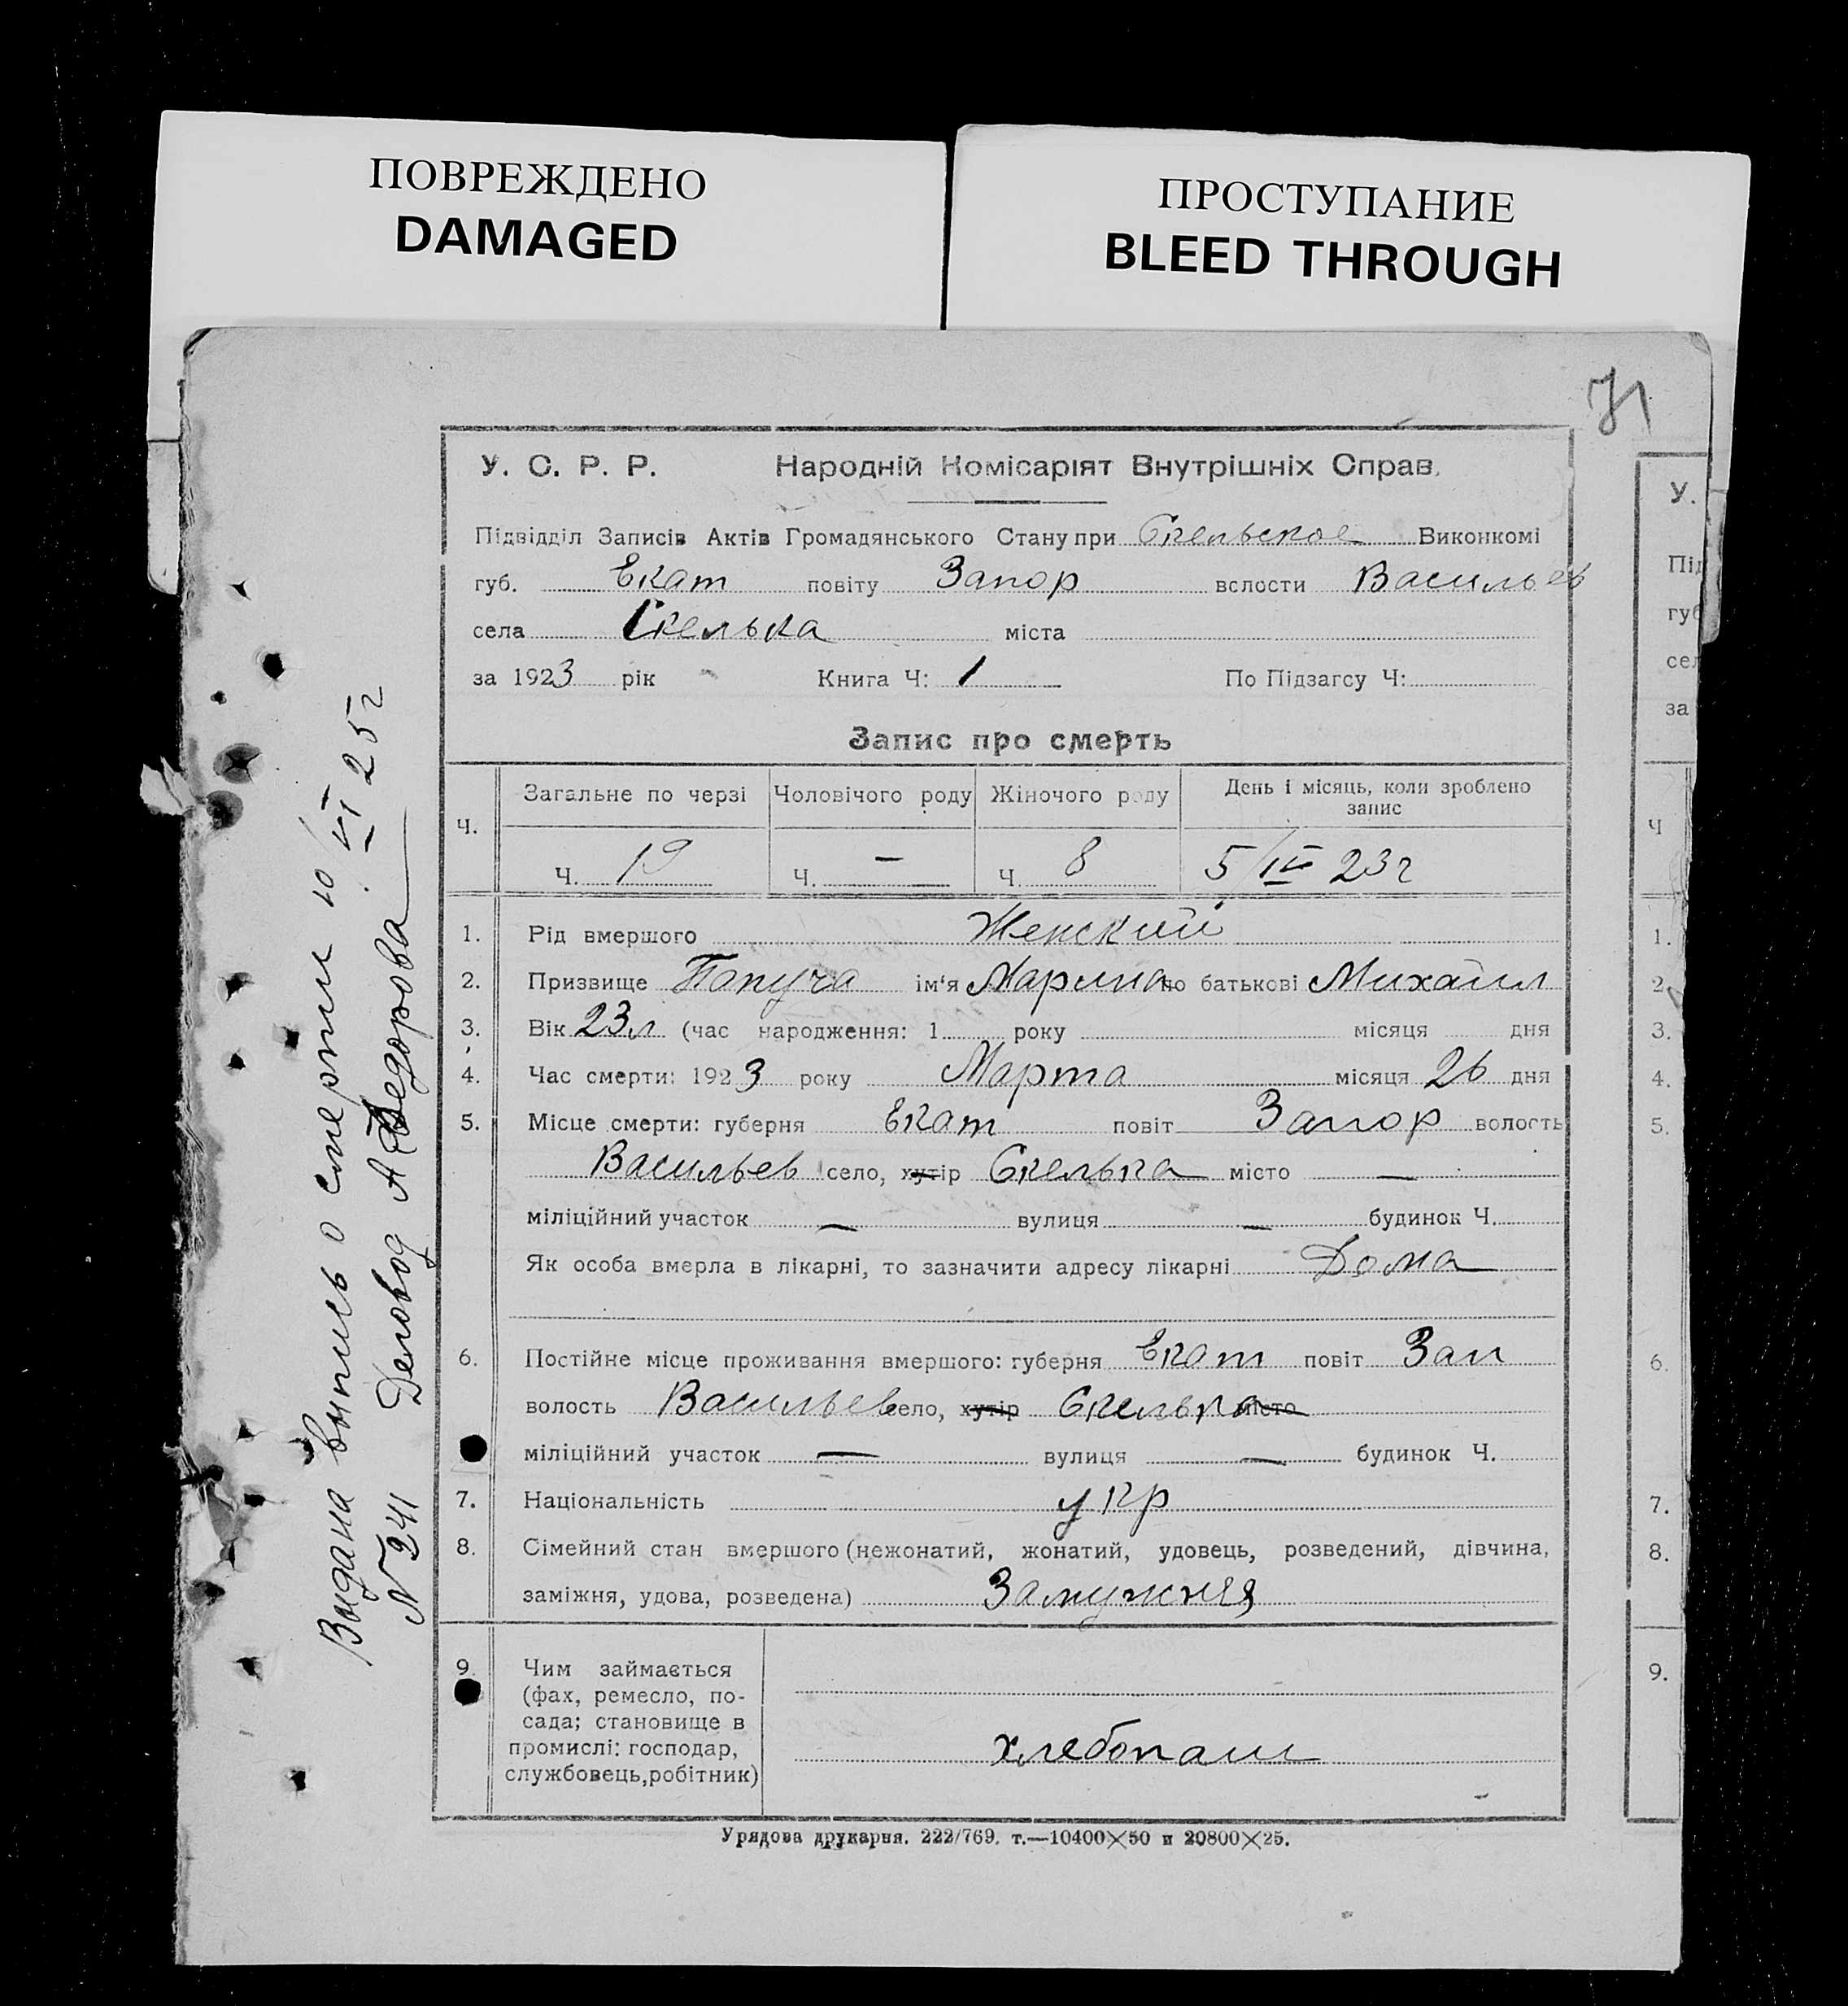 ПОВРЕЖДЕНО
DAMAGED
ПРОСТУПАНИЕ
BLEED THROUGH
71
У. С. Р. Р. Народній Комісаріят Внутрішніх Справ.
Підвідділ Записів Актів Громадянського Стану при Скельское Виконкомі
губ. Екат повіту Запор волости Васильев
села Скелька міста
за 1923 рік Книга Ч: 1 По Підзагсу Ч:
Запис про смерть
Ч. Загальне по черзі Чоловічого роду Жіночого роду День і місяць, коли зроблено запис
Ч. 19 Ч. — Ч. 8 5/IV 23 г
1. Рід вмершого Женский
2. Призвище Папуча ім'я Марина по батькові Михаил
3. Вік 23 л (час народження: 1 року місяця дня
4. Час смерти: 1923 року Марта місяця 26 дня
5. Місце смерти: губерня Екат повіт Запор волость
Васильев село, хутір Скелька місто —
міліційний участок — вулиця — будинок Ч.
Як особа вмерла в лікарні, то зазначити адресу лікарні Дома
6. Постійне місце проживання вмершого: губерня Екат повіт Зап
волость Васильев село, хутір Скелька місто
міліційний участок — вулиця — будинок Ч.
7. Національність укр
8. Сімейний стан вмершого (нежонатий, жонатий, удовець, розведений, дівчина,
заміжня, удова, розведена) Замужняя
9. Чим займається
(фах, ремесло, по-
сада; становище в
промислі: господар,
службовець, робітник)
хлебопаш
Урядова друкарня. 222/769. т.—10400×50 и 20800×25.
Выдана выпись о смерти 10/VI 25 г
N 241 Деловод А Федорова
У.
Під
губ
сел
за
Ч
1.
2.
3.
4.
5.
6.
7.
8.
9.